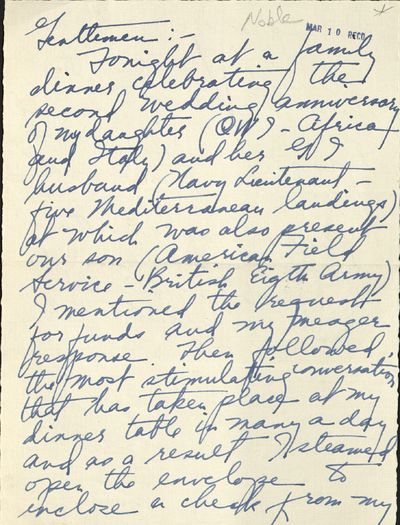 Noble
MAR 10 RECD
Gentlemen:-
Tonight at a family
dinner celebrating the
second wedding anniversary
of my daughter (OWI - Africa
and Italy) and her
husband (Navy Lieutenant -
five Mediterranean landings)
at which was also present
our son (American Field
Service - British Eigth Army)
I mentioned the request
for funds and my meager
response. Then followed,
the most stimulating conversation
that has taken place at my
dinner table in many a day
and as a result I steamed
open the envelope to
inclose a check from my